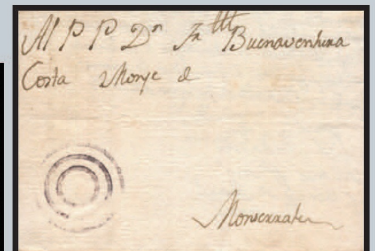 Al P P Dn Fr Buenaventura
Costa Monje de
Monserrate